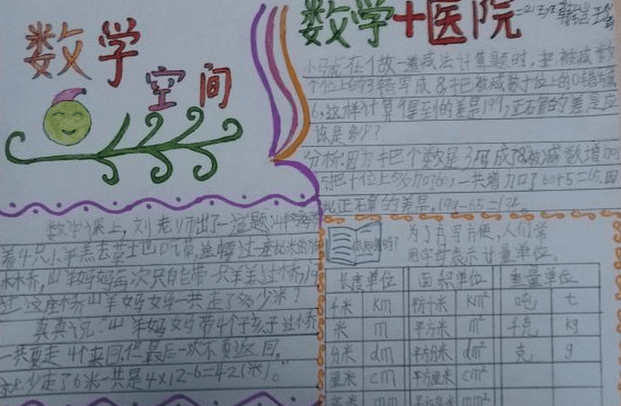 数学
空间
数学+医院
小马虎在做一道减法计算题时,把被减数
个位上的3错写成8,把被减数十位上的0错写成
6,这样计算得到的差是199,正确的差应
该是多少?
分析:因为把个数是3写成8被减数增加
5,把十位上 一共增加了60+5=65,因
此正确的差是,199-65=134。
数学课上,刘老师出了一道题:山羊妈妈
着4只小羊羔去草土也吃草,途中要过一座 米的
木桥,山羊妈妈每次只能带一只羊羔过桥,
过这座木桥山羊妈妈一共走了多少米?
真真说:山羊妈妈带4个孩子过桥
一共要走4个来回,但最后一次不要返回,
就少走了6米一共是4×12-6=42(米)。
你知道吗?
为了书写方便,人们常
用字母表示计量单位。
长度单位 面积单位 重量单位
千米 km 平方千米 km² 吨 t
米 m 平方米 m² 千克 kg
分米 dm 平方分米 dm² 克 g
厘米 cm 平方厘米 cm²
毫米 mm 平方毫米 mm²